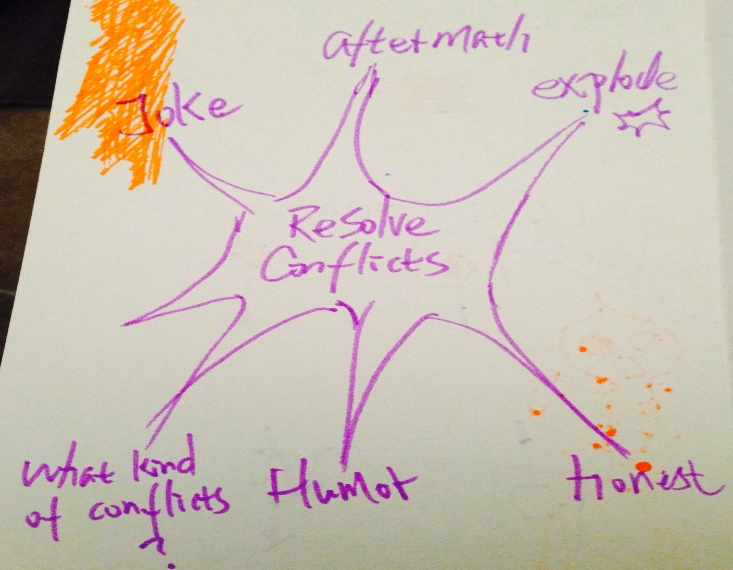 aftermath
explode
Joke
Resolve
Conflicts
what kind
of conflicts
?
Humor
honest